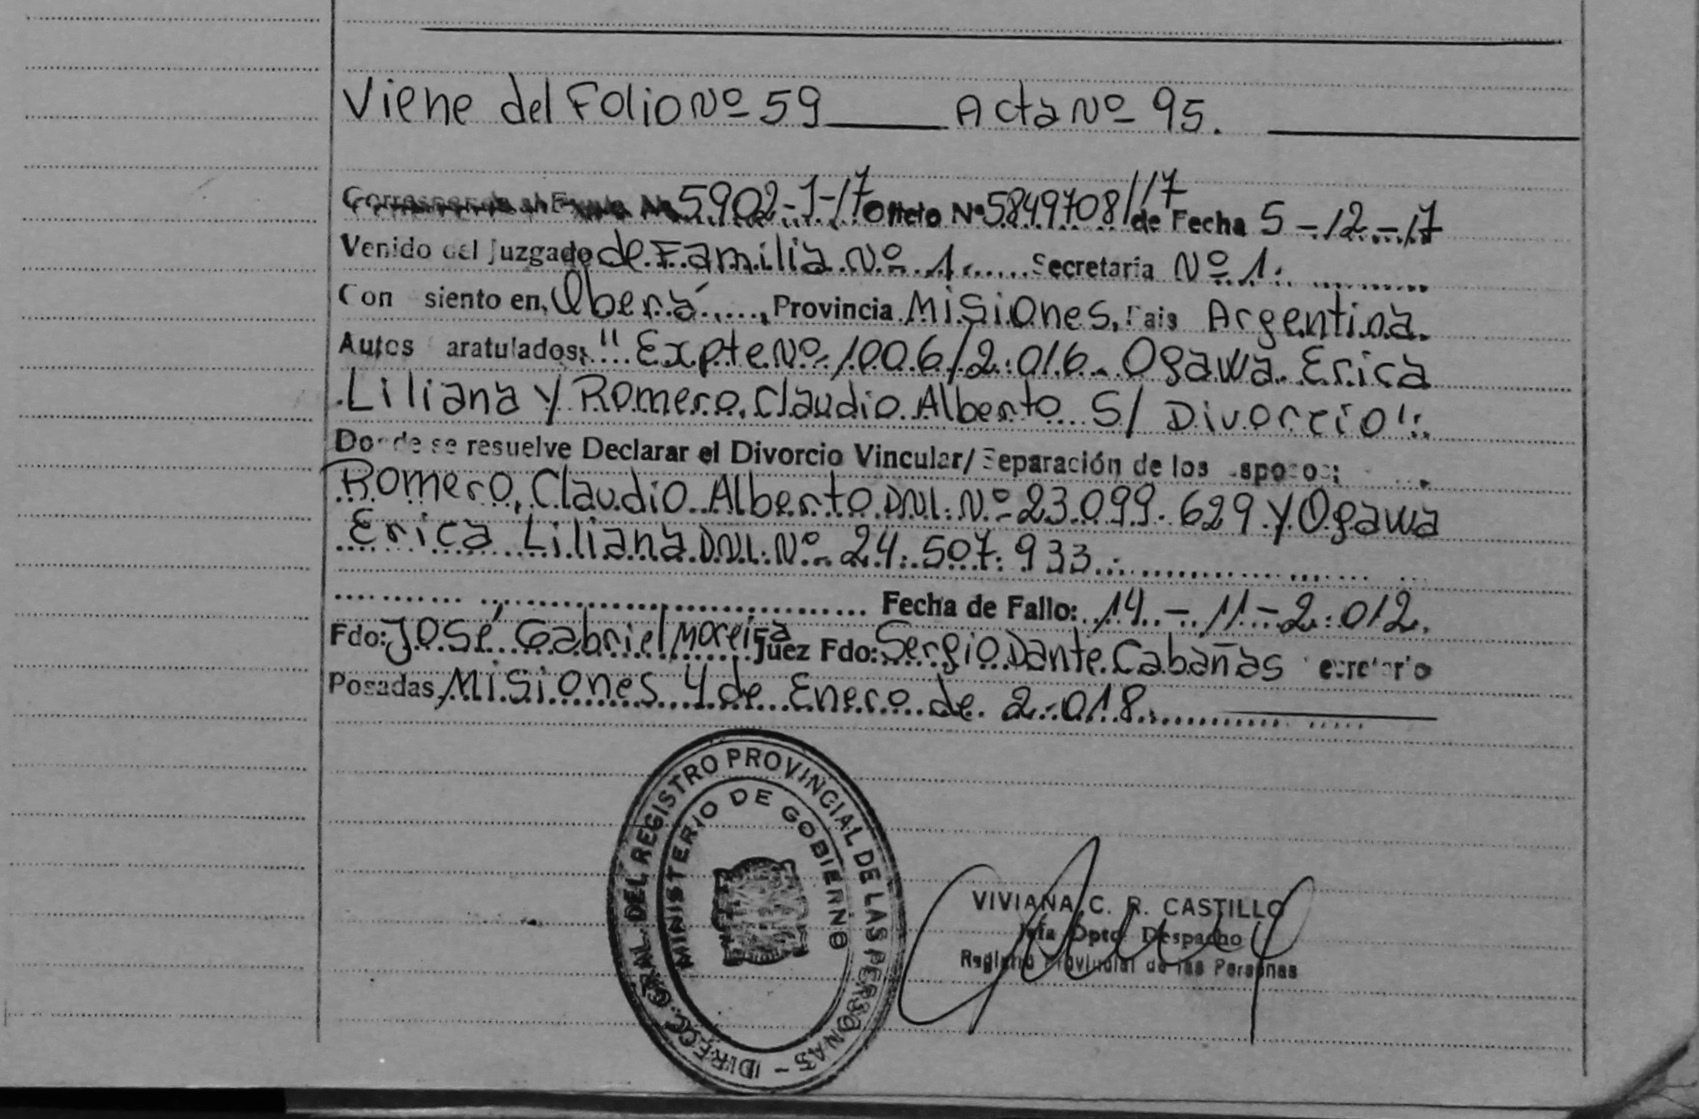 Viene del Folio Nº 59 Acta Nº 95.
Corresponde al Expte Nº 5902-1-17 Oficio Nº 5849708/17 de Fecha 5-12-17
Venido del Juzgado de Familia Nº 1. Secretaria Nº 1.
Con siento en, Oberá, Provincia Misiones, Pais Argentina.
Autos aratulados; "Expte Nº 1006/2.016. Ogawa Erica
Liliana y Romero, Claudio Alberto S/ Divorcio".
Donde se resuelve Declarar el Divorcio Vincular/Separación de los esposos;
Romero, Claudio Alberto D.N.I. Nº 23.099.629 y Ogawa
Erica Liliana D.N.I. Nº 24.507.933.
Fecha de Fallo: 14-11-2.012.
Fdo: José Gabriel Moreira Juez Fdo: Sergio Dante Cabañas Secretario
Posadas, Misiones 4 de Enero de 2.018.
DIRECC. GRAL. DEL REGISTRO PROVINCIAL DE LAS PERSONAS -
MINISTERIO DE GOBIERNO
VIVIANA C. R. CASTILLO
Jefa Dpto Despacho
Registro Provincial de las Personas